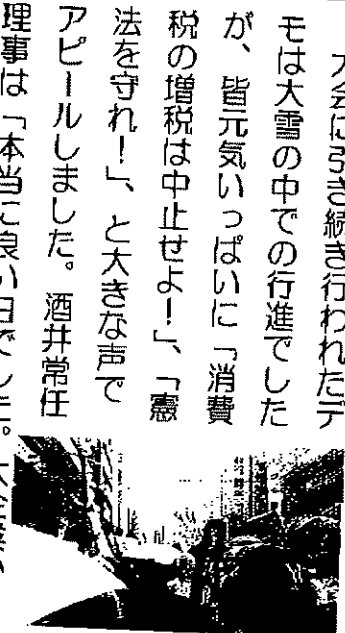 大会に引き続き行われたデ
モは大雪の中での行進でした
が、皆元気いっぱいに「消費
税の増税は中止せよ!」、「憲
法を守れ!」、と大きな声で
アピールしました。酒井常任
理事は「本当に良い日でした。